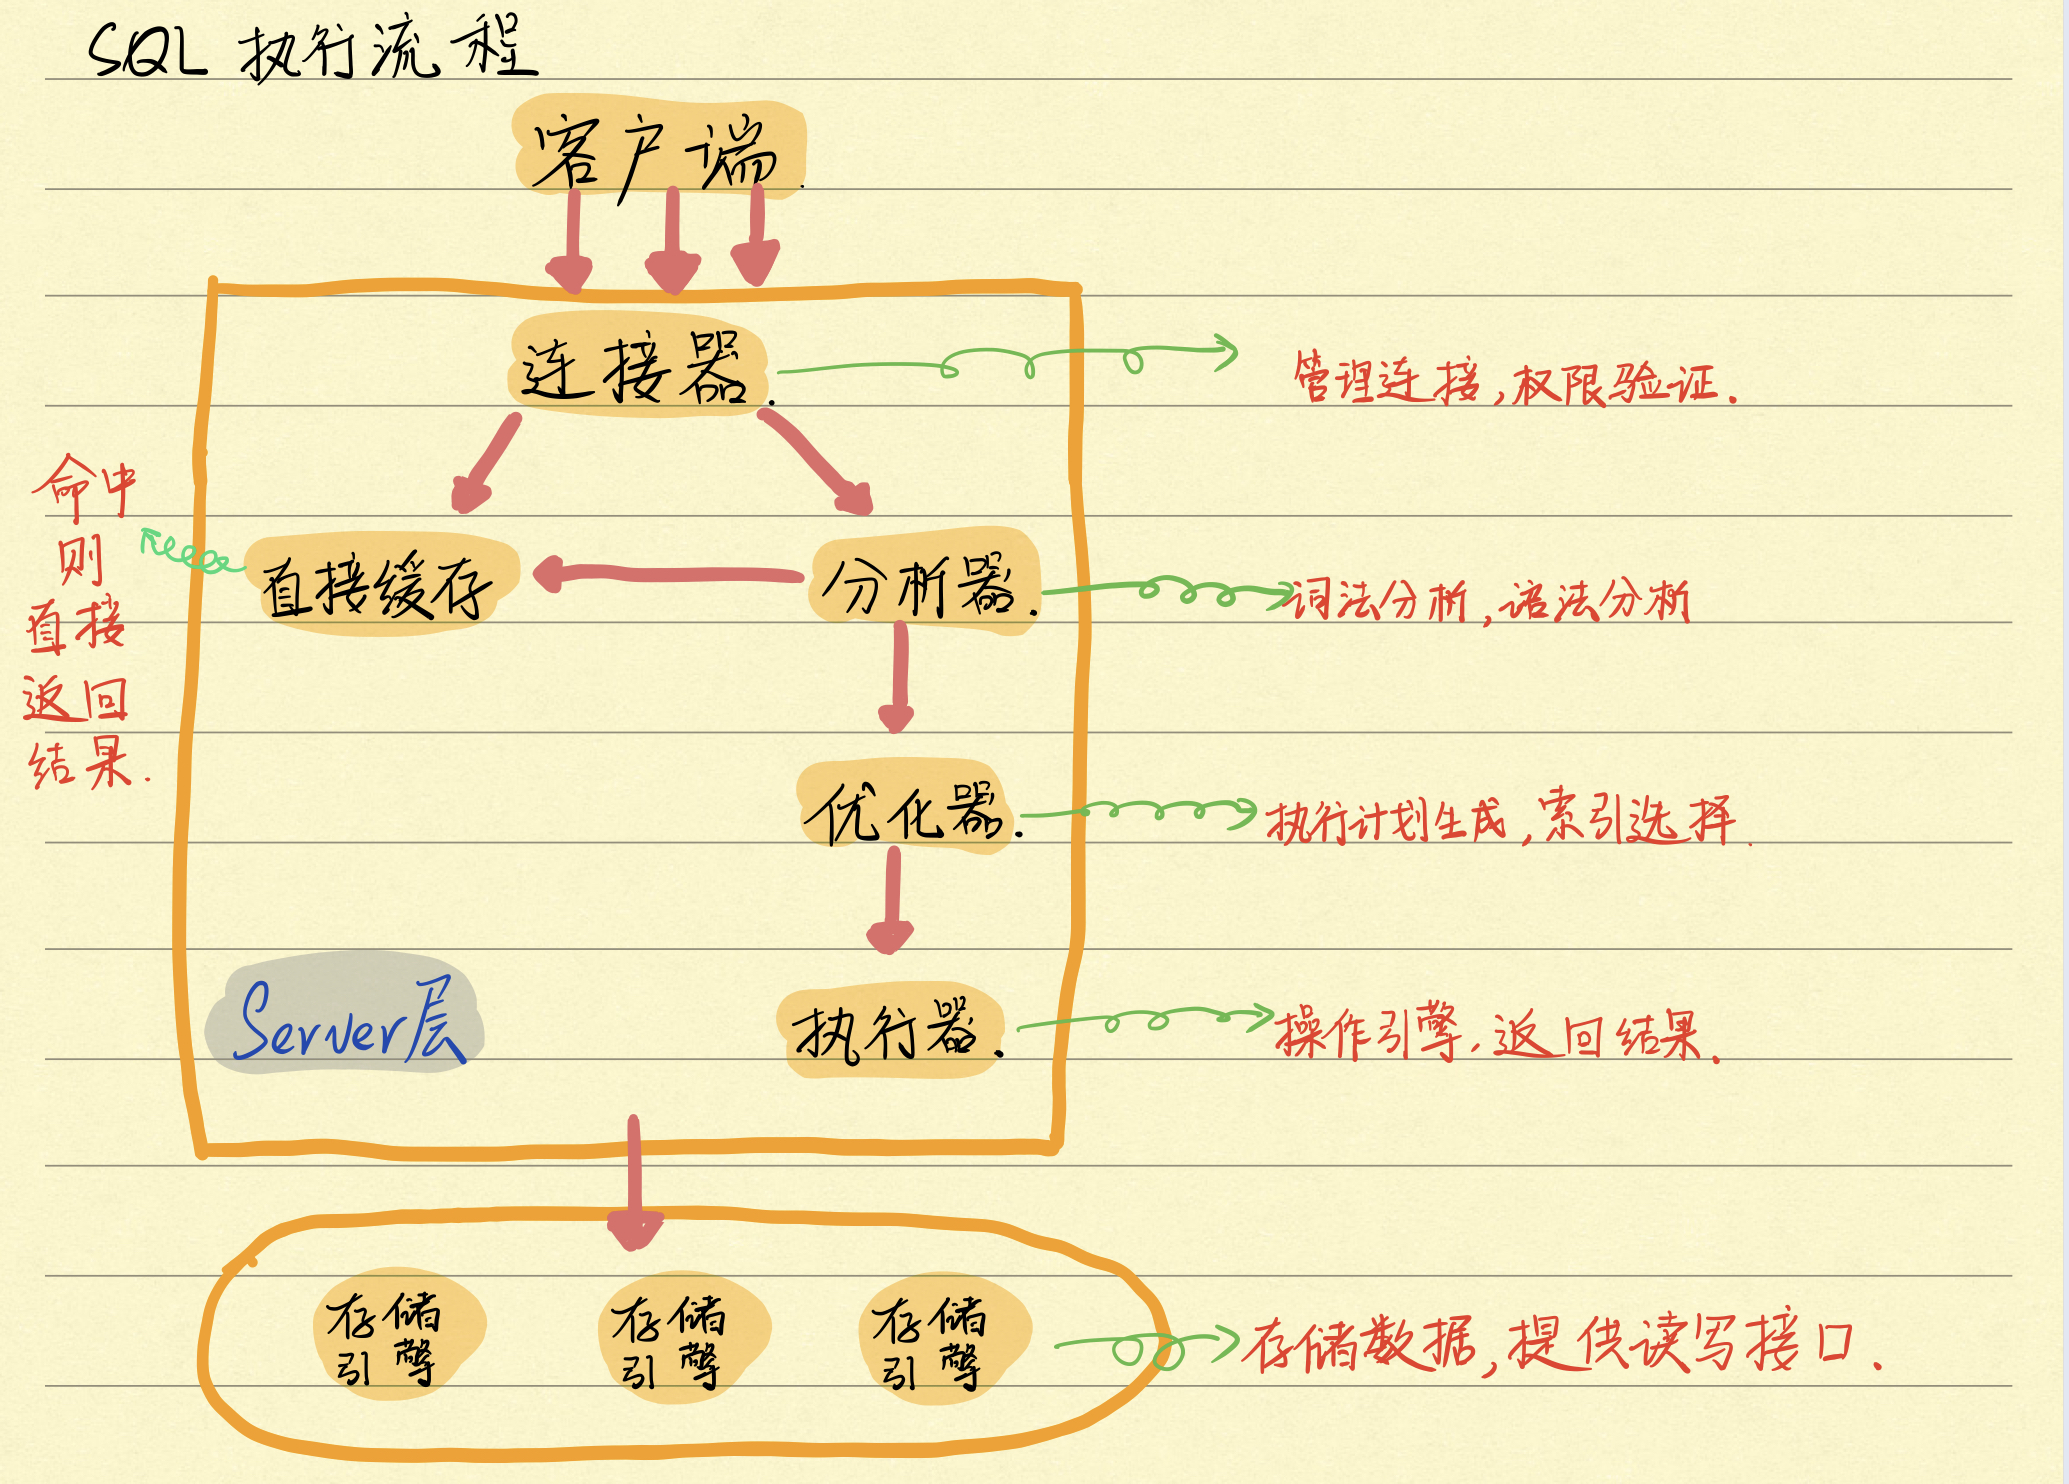 SQL 执行流程
客户端.
连接器.
管理连接,权限验证.
命中
则
直接
返回
结果.
直接缓存
分析器.
词法分析,语法分析
优化器.
执行计划生成,索引选择.
Server层
执行器.
操作引擎.返回结果.
存储
引擎
存储
引擎
存储
引擎
存储数据,提供读写接口.